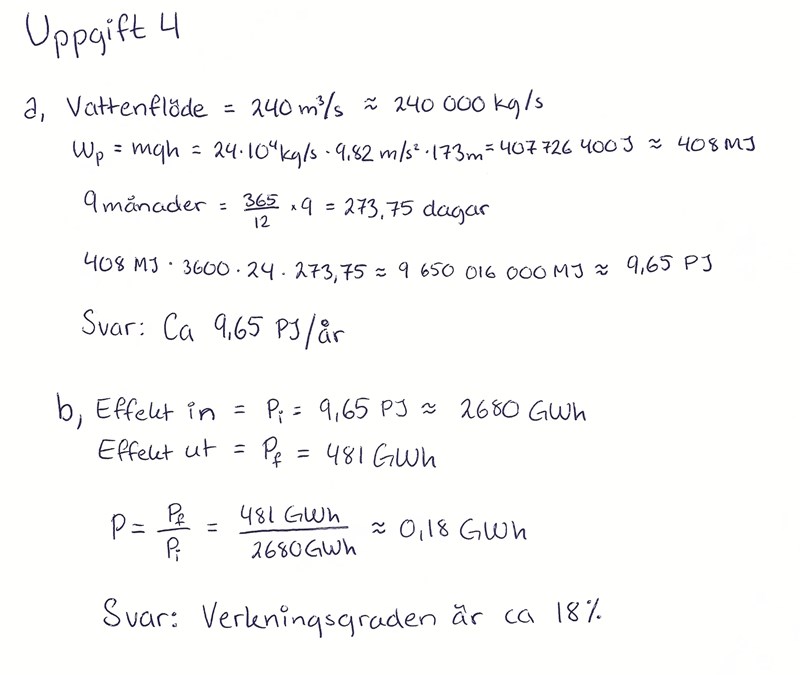 Uppgift 4
a, Vattenflöde = 240 m³/s ≈ 240 000 kg/s
Wp = mgh = 24·10⁴ kg/s · 9,82 m/s² · 173m = 407 726 400 J ≈ 408 MJ
9 månader = 365/12 × 9 = 273,75 dagar
408 MJ · 3600 · 24 · 273,75 ≈ 9 650 016 000 MJ ≈ 9,65 PJ
Svar: Ca 9,65 PJ/år
b, Effekt in = Pi = 9,65 PJ ≈ 2680 GWh
Effekt ut = Pf = 481 GWh
P = Pf/Pi = 481 GWh/2680 GWh ≈ 0,18 GWh
Svar: Verkningsgraden är ca 18%